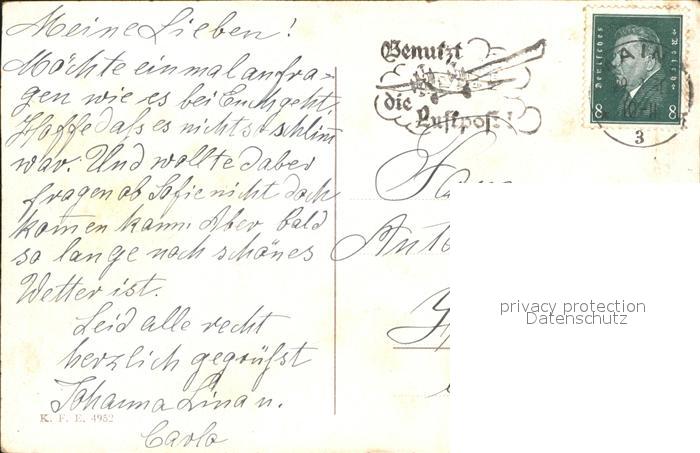 Meine Lieben!
Möchte einmal anfra-
gen wie es bei Euch geht,
Hoffe dass es nicht so schlim
war. Und wollte daber
fragen ob Sofie nicht doch
kommen kann. Aber bald
so lange noch schönes
Wetter ist.
Seid alle recht
herzlich gegrüsst
Johanna Lina u.
Carlo
K. F. E. 4952
Benutzt
die
Luftpost!
Deutsches Reich
8 8
3
Anto
privacy protection
Datenschutz